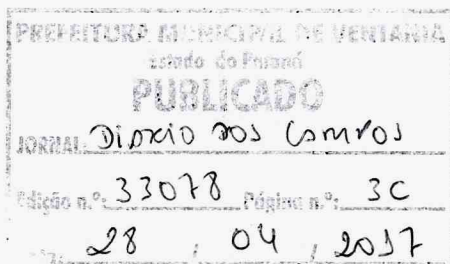 PREFEITURA MUNICIPAL DE VENTANIA
Estado do Paraná
PUBLICADO
JORNAL: DIARIO DOS CAMPOS
Edição n.º: 33078 Página n.º: 3C
28 / 04 / 2017